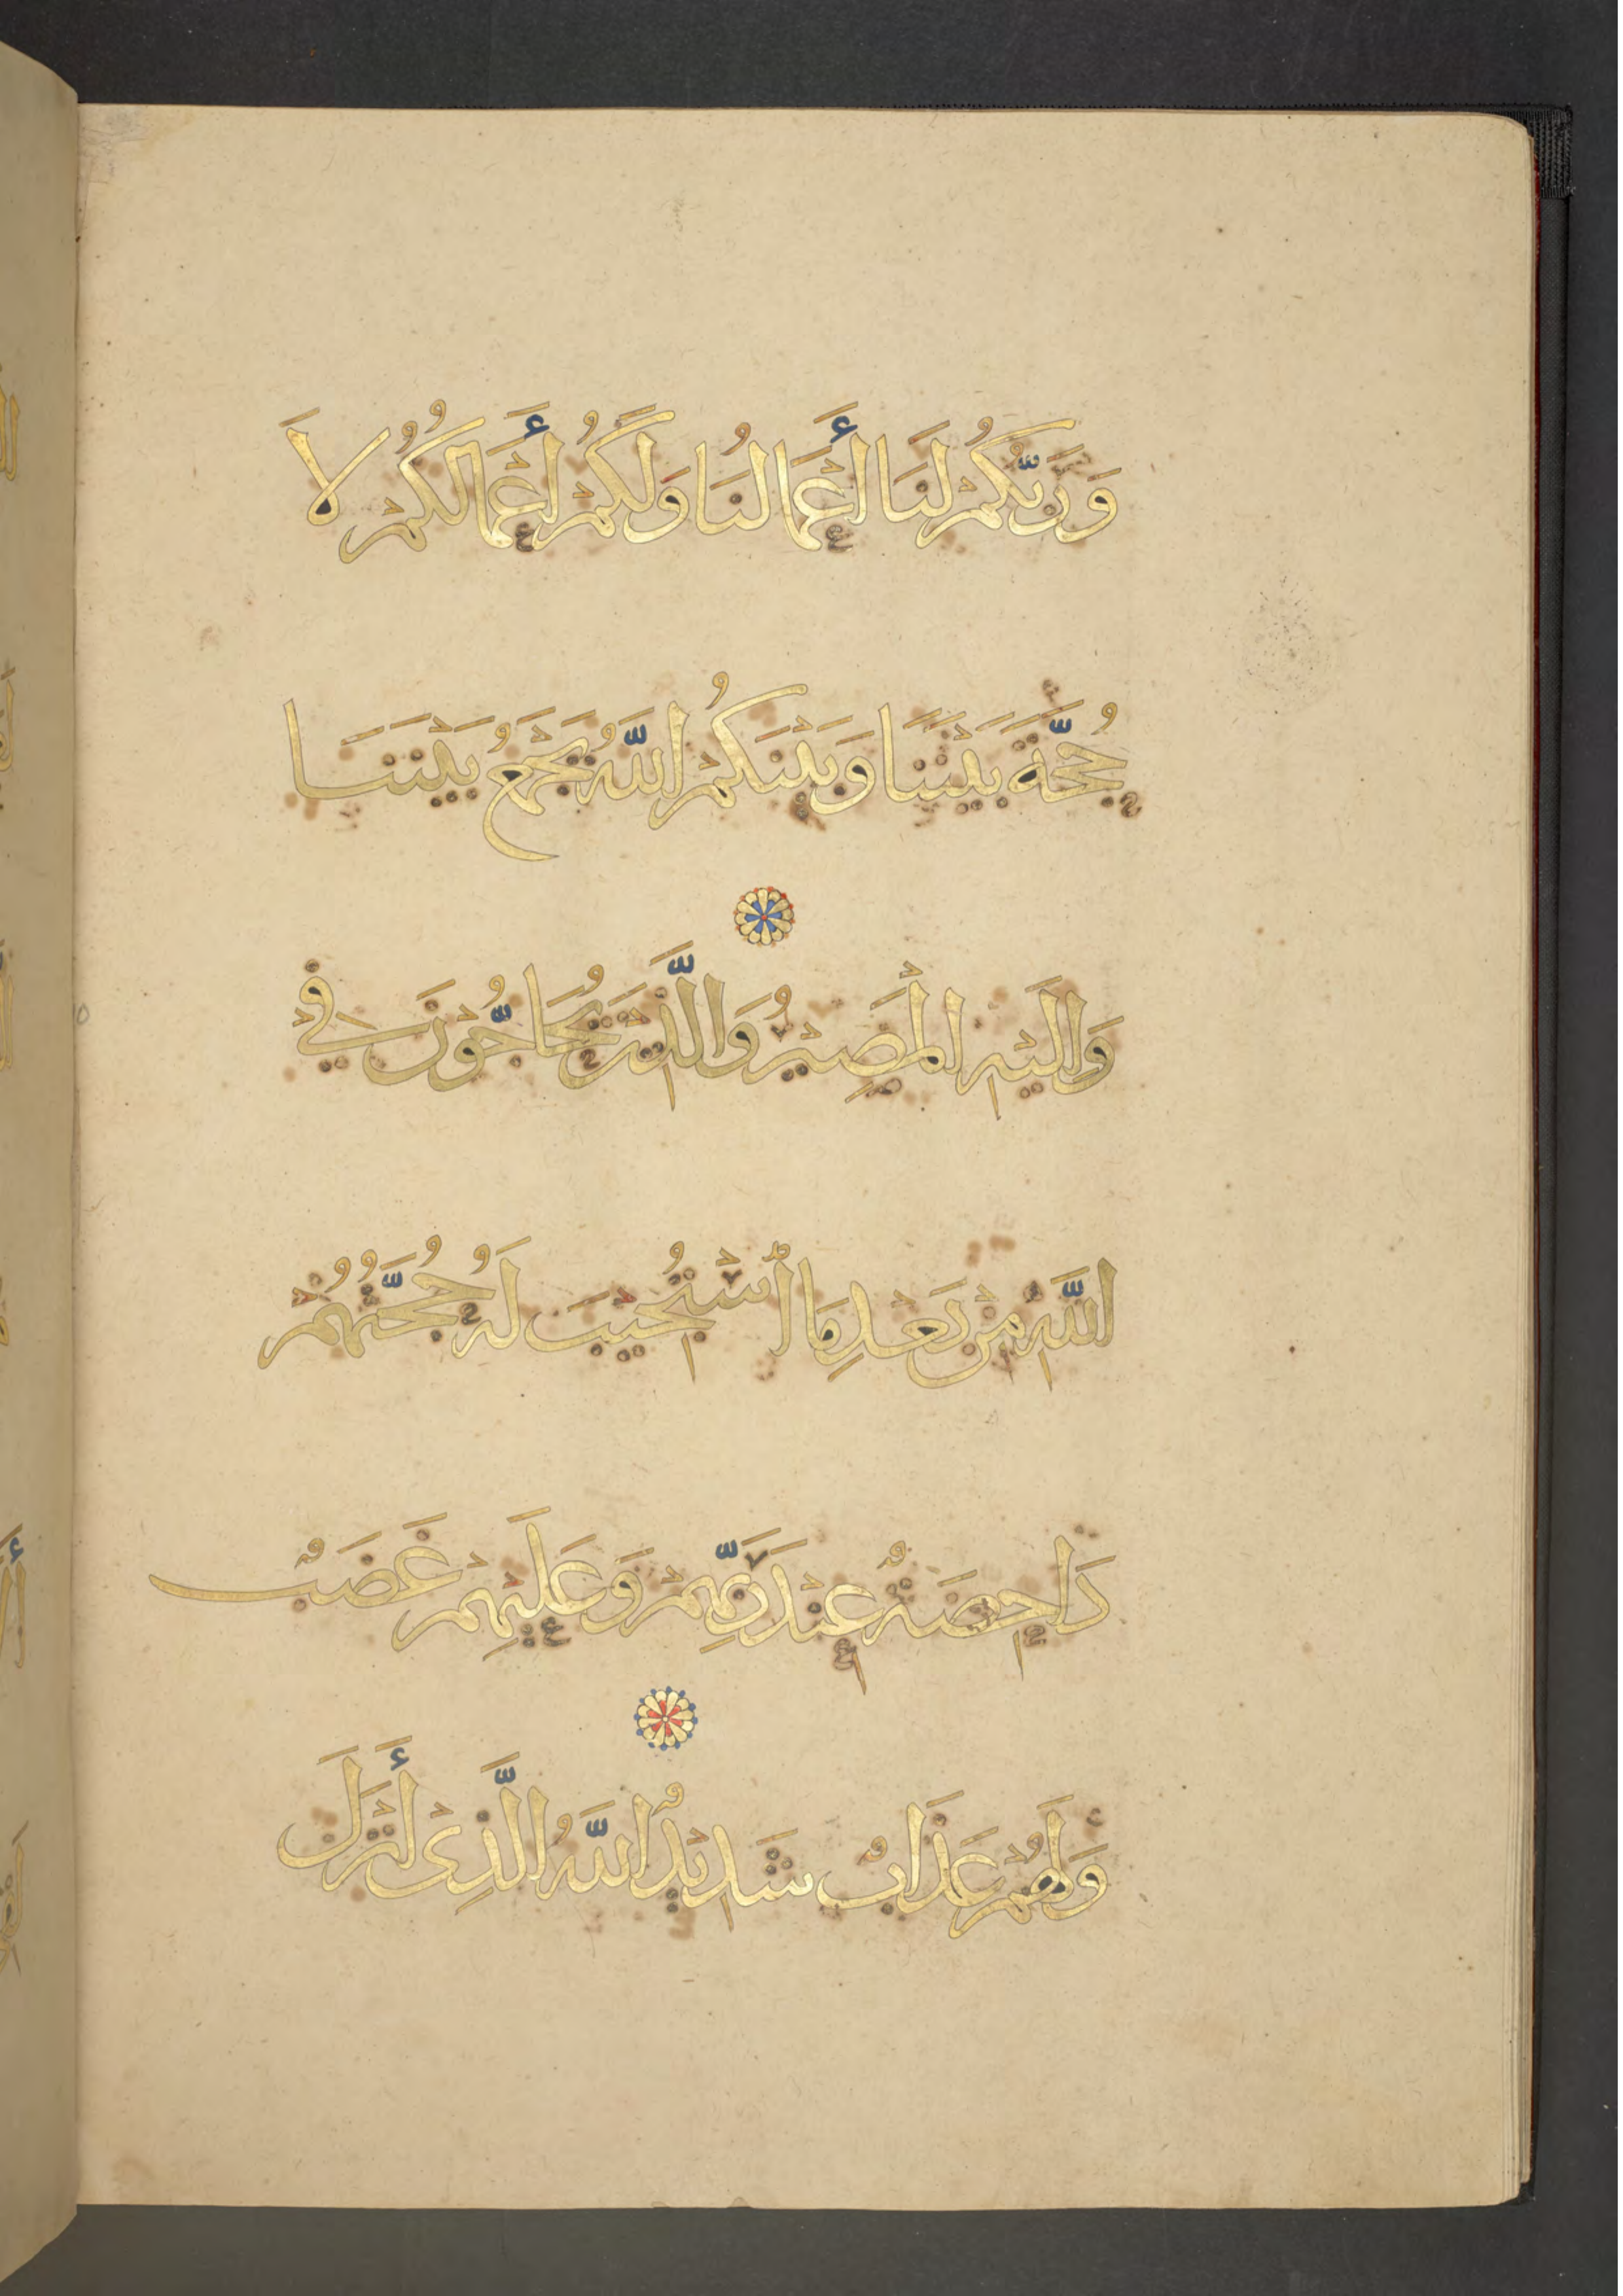 وَرَبُّكُمْ لَنَا أَعْمَالُنَا وَلَكُمْ أَعْمَالُكُمْ لَا
حُجَّةَ بَيْنَنَا وَبَيْنَكُمُ اللَّهُ يَجْمَعُ بَيْنَنَا
وَإِلَيْهِ الْمَصِيرُ وَالَّذِينَ يُحَاجُّونَ فِي
اللَّهِ مِنْ بَعْدِ مَا اسْتُجِيبَ لَهُ حُجَّتُهُمْ
دَاحِضَةٌ عِنْدَ رَبِّهِمْ وَعَلَيْهِمْ غَضَبٌ
وَلَهُمْ عَذَابٌ شَدِيدٌ اللَّهُ الَّذِي أَنْزَلَ